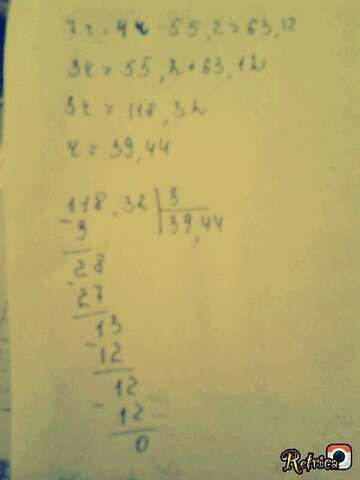 7x - 4x - 55,2 = 63,12
3x = 55,2 + 63,12
3x = 118,32
x = 39,44
118,32 | 3
- 9 39,44
28
- 27
13
- 12
12
- 12
0
Retrica